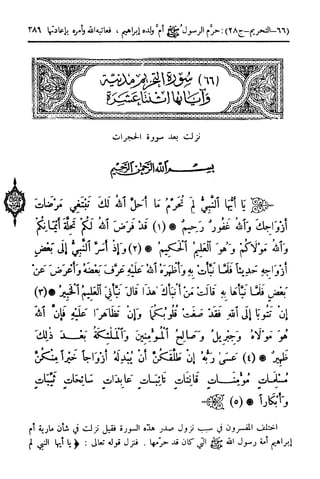 (٦٦-التحريم-ج٢٨): حرَّم الرسول ﷺ أمَّ ولده إبراهيم، فعاتبه الله وأمره بإعادتها ٣٨٩
(٦٦) سُورَةُ التَّحْرِيمِ مَدَنِيَّة
وَآيَاتُهَا اثْنَتَا عَشِرَة
نزلت بعد سورة الحجرات
بِسْمِ اللهِ الرَّحْمٰنِ الرَّحِيمِ
يَا أَيُّهَا النَّبِيُّ لِمَ تُحَرِّمُ مَا أَحَلَّ اللهُ لَكَ تَبْتَغِي مَرْضَاتَ
أَزْوَاجِكَ وَاللهُ غَفُورٌ رَحِيمٌ * (١) قَدْ فَرَضَ اللهُ لَكُمْ تَحِلَّةَ أَيْمَانِكُمْ
وَاللهُ مَوْلَاكُمْ وَهُوَ الْعَلِيمُ الْحَكِيمُ * (٢) وَإِذْ أَسَرَّ النَّبِيُّ إِلَى بَعْضِ
أَزْوَاجِهِ حَدِيثاً فَلَمَّا نَبَّأَتْ بِهِ وَأَظْهَرَهُ اللهُ عَلَيْهِ عَرَّفَ بَعْضَهُ وَأَعْرَضَ عَنْ
بَعْضٍ فَلَمَّا نَبَّأَهَا بِهِ قَالَتْ مَنْ أَنْبَأَكَ هَذَا قَالَ نَبَّأَنِيَ الْعَلِيمُ الْخَبِيرُ * (٣)
إِنْ تَتُوبَا إِلَى اللهِ فَقَدْ صَغَتْ قُلُوبُكُمَا وَإِنْ تَظَاهَرَا عَلَيْهِ فَإِنَّ اللهَ
هُوَ مَوْلَاهُ وَجِبْرِيلُ وَصَالِحُ الْمُؤْمِنِينَ وَالْمَلَائِكَةُ بَعْدَ ذَلِكَ
ظَهِيرٌ * (٤) عَسَى رَبُّهُ إِنْ طَلَّقَكُنَّ أَنْ يُبْدِلَهُ أَزْوَاجاً خَيْراً مِنْكُنَّ
مُسْلِمَاتٍ مُؤْمِنَاتٍ قَانِتَاتٍ تَائِبَاتٍ عَابِدَاتٍ سَائِحَاتٍ ثَيِّبَاتٍ
وَأَبْكَاراً * (٥)
اختلف المفسرون في سبب نزول صدر هذه السورة فقيل نزلت في شأن مارية أم
إبراهيم أمة رسول الله ﷺ التي كان قد حرّمها. فنزل قوله تعالى: ﴿يا أيها النبي لم